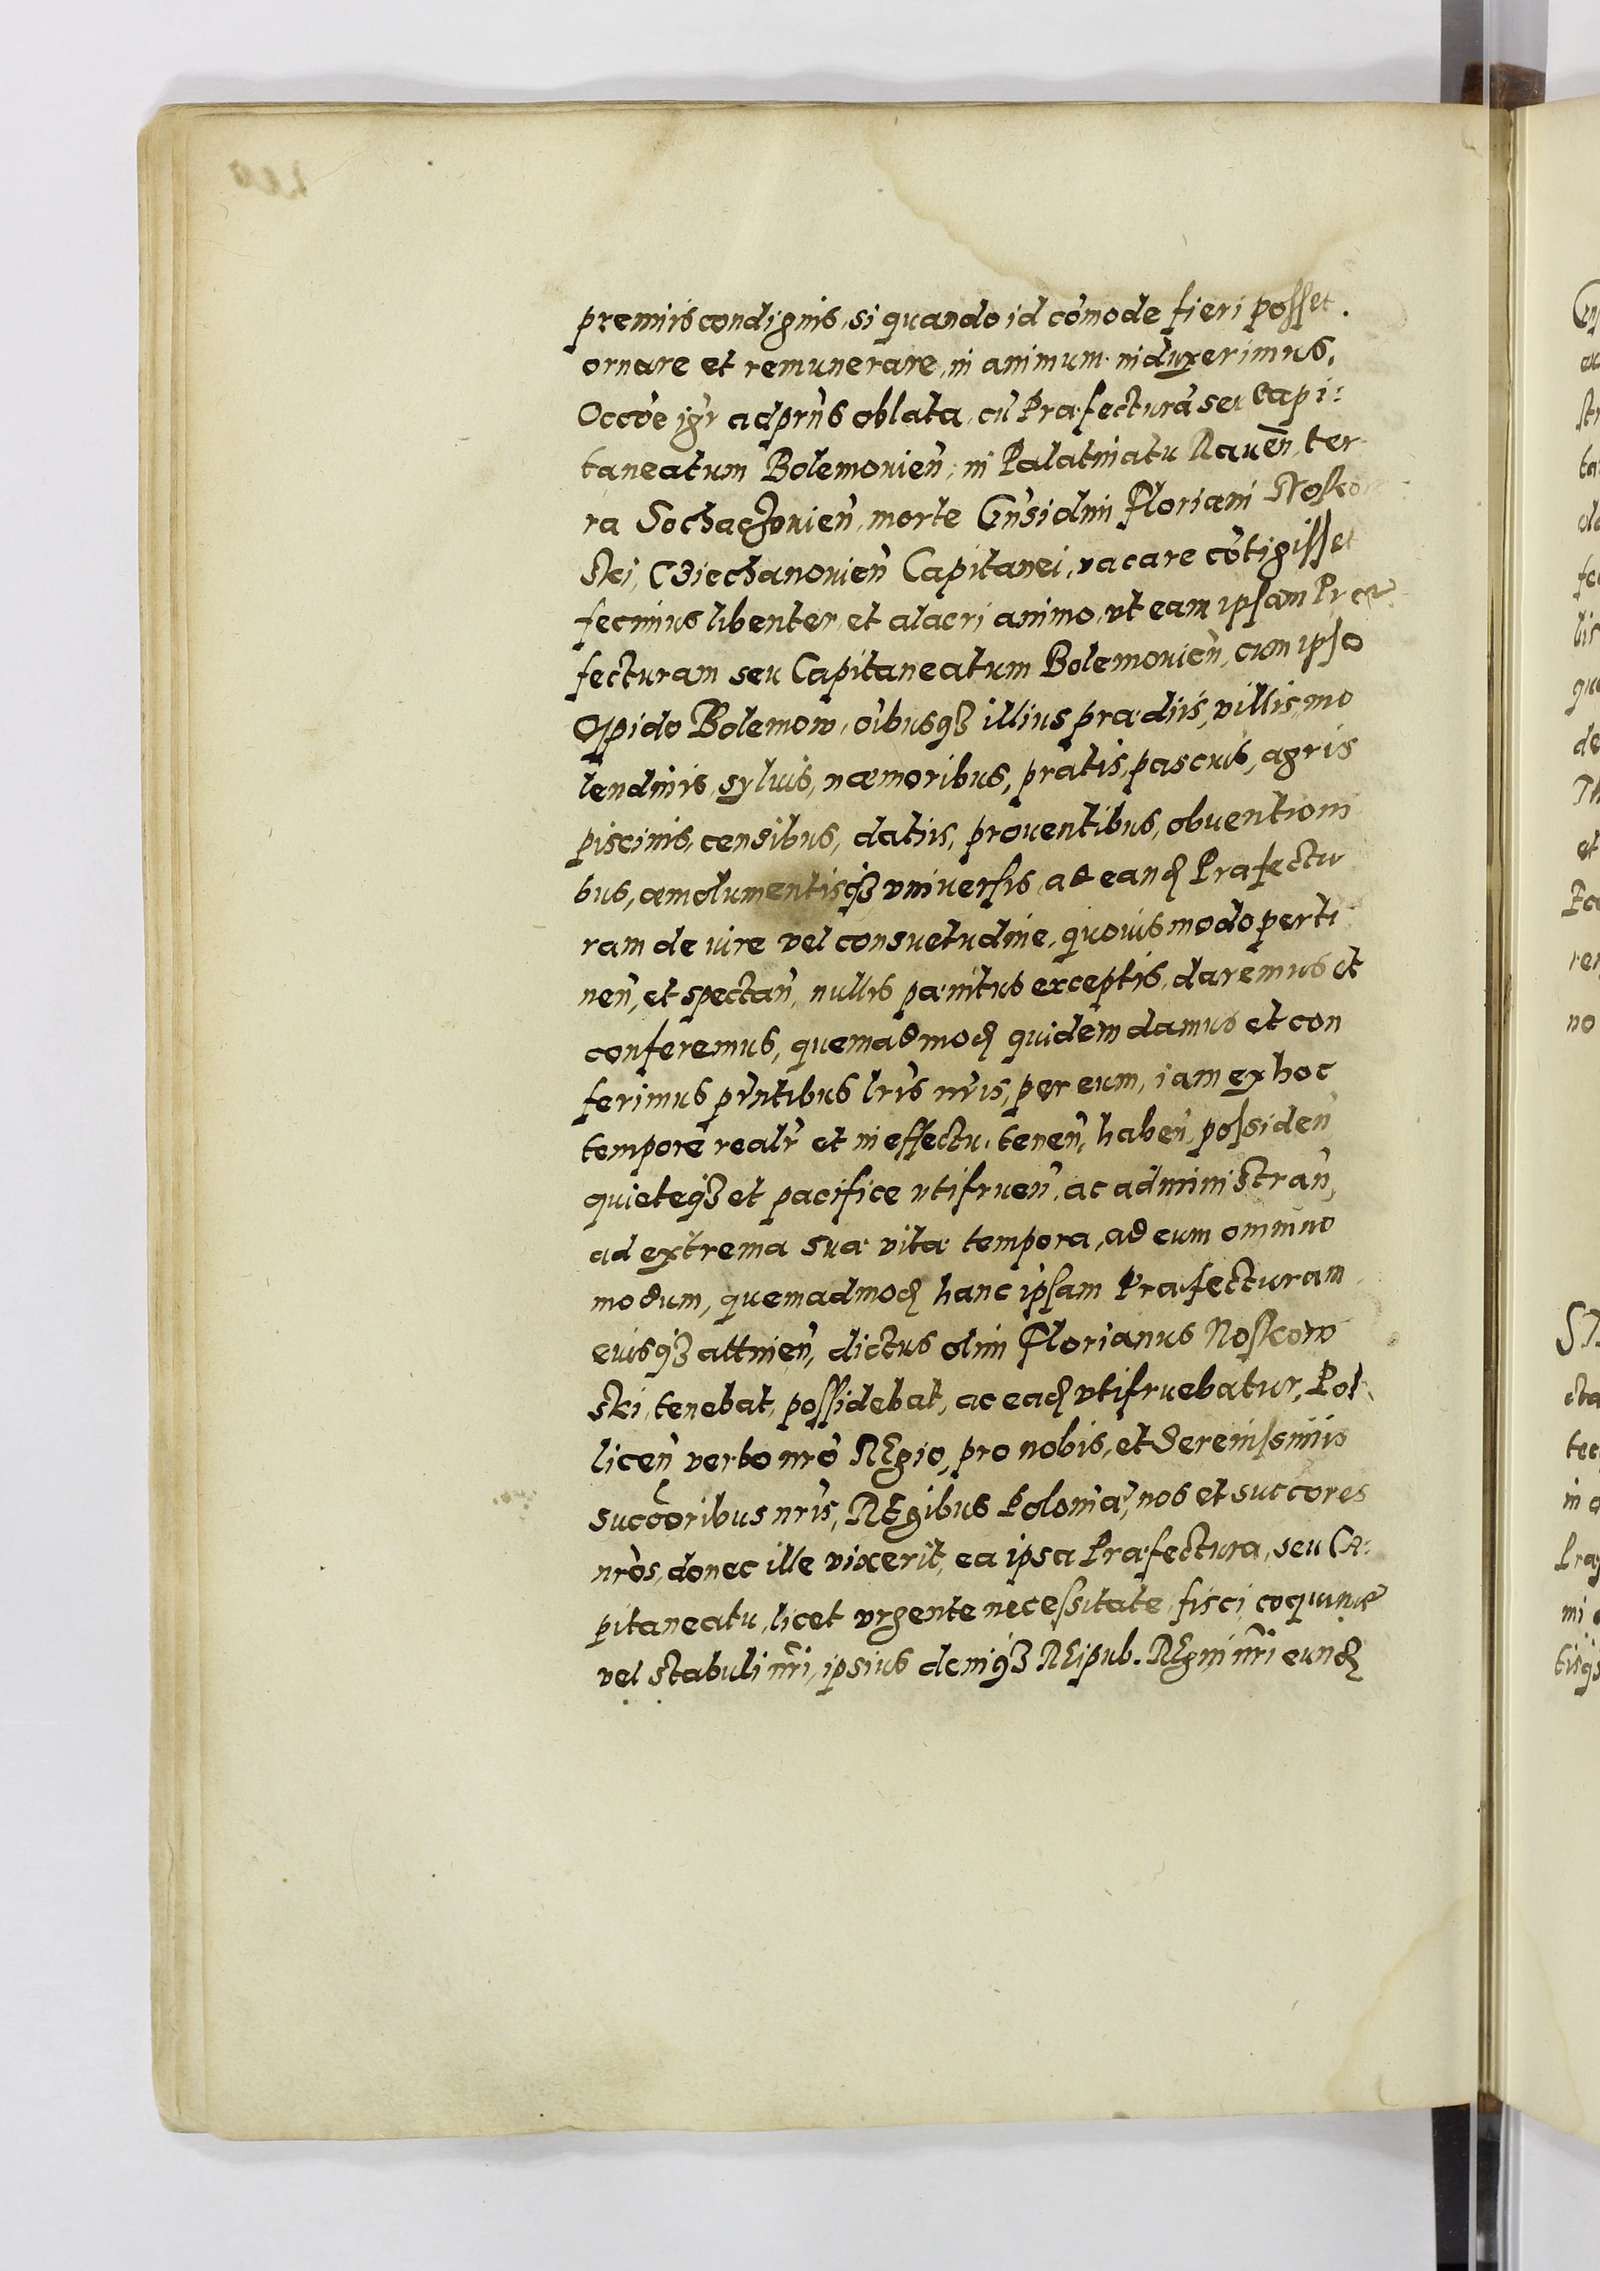 premiis condignis, si quando id com̄ode fieri posset.
ornare et remunerare, in animum induxerimus.
Occōe igr̄ ad prn̄s oblata, cū Præfecturā seu Capi:
taneatum Bolemouien̄, in Palatinatu Rauen̄, ter
ra Sochaczouien̄, morte Gn̄si olim Floriani Noskow
ski, Cziechanouien̄ Capitanei, vacare cōtigisset
fecimus libenter, et alacri animo, vt eam ipsam Præ
fecturam seu Capitaneatum Bolemouien̄, cum ipso
Opido Bolemow, oībusqȝ illius prædiis, villis, mo
lendinis, syluis, næmoribus, pratis, pascuis, agris
piscinis, censibus, datiis, prouentibus, obuentioni
bus, æmolumentisqȝ vniuersis, ad eanđ Præfectu
ram de iure vel consuetudine, quouis modo perti
nen̄, et spectan̄, nullis pænitus exceptis, daremus et
conferemus, quemadmođ quidem damus et con
ferimus pn̄tibus lr̄is nr̄is, per eum, iam ex hoc
tempore realr̄ et in effectu, tenen̄, haben̄, possiden̄
quieteqȝ et pacifice vtifruen̄, ac administran̄,
ad extrema suæ vitæ tempora, ad eum omnino
modum, quemadmođ hanc ipsam Præfecturam
euisqȝ attinen̄, dictus olim Florianus Noskow
ski, tenebat, possidebat, ac eađ vtifruebatur, Pol
licen̄ verbo nr̄o REgio, pro nobis, et Serenissimis
Succōribus nr̄is, REgibus Poloniæ, nos et succores
nr̄os, donec ille vixerit, ea ipsa Præfectura, seu Ca:
pitaneatu, licet vrgente necessitate fisci, coquinæ
vel stabuli nr̄i, ipsius deniqȝ REipub. REgni nr̄i eunđ